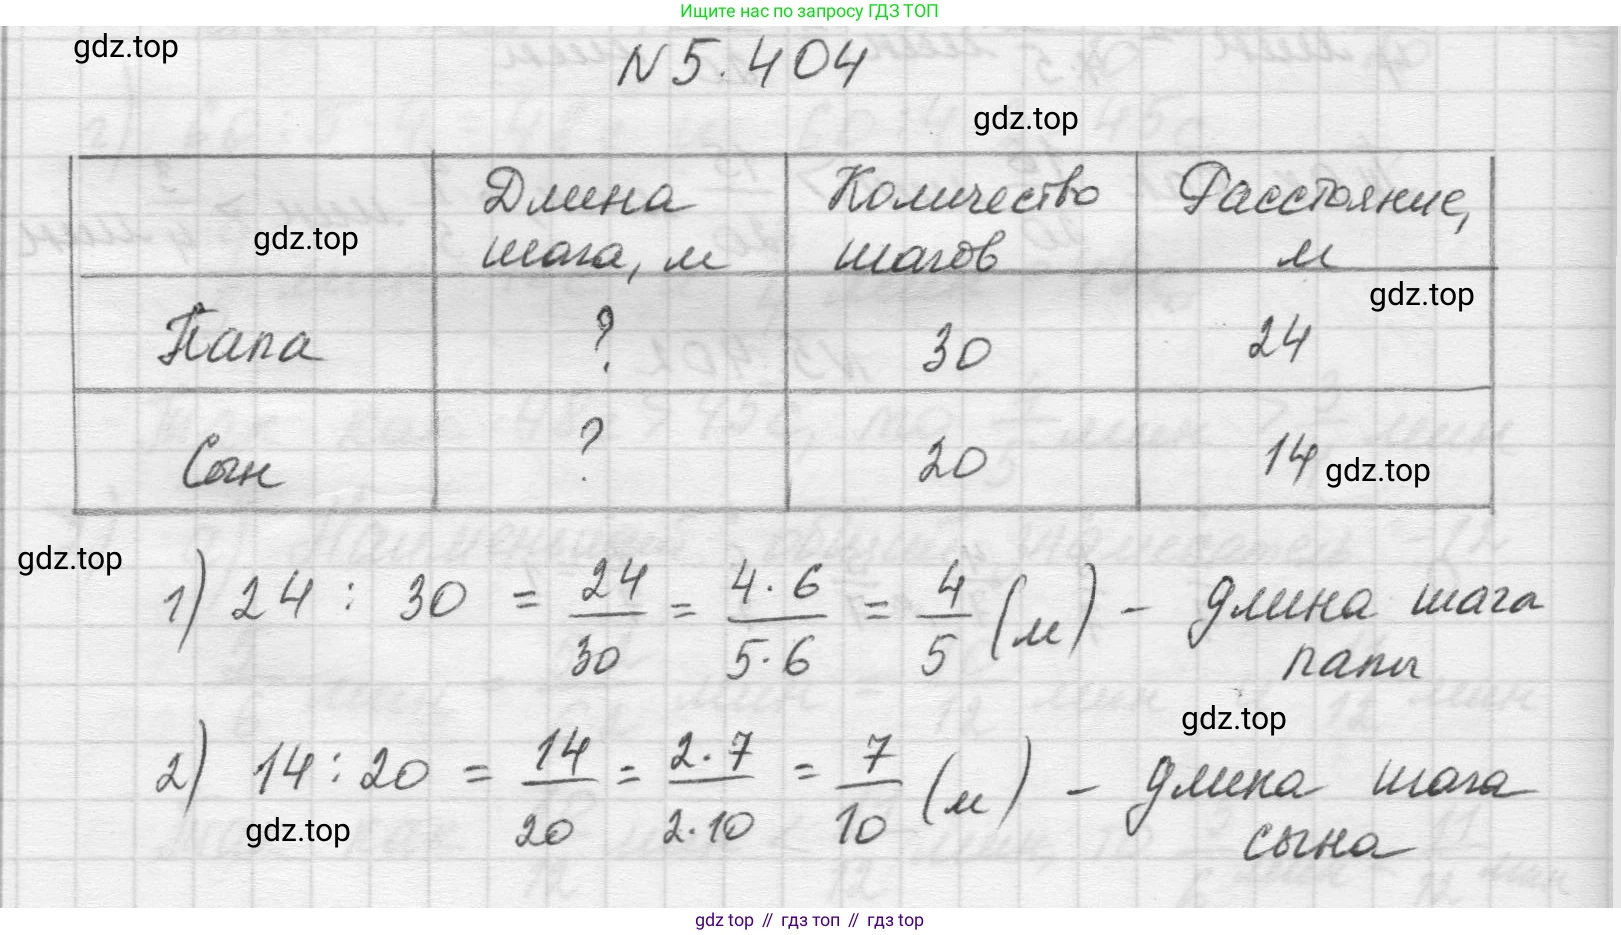 Ищите нас по запросу ГДЗ ТОП
gdz.top
N 5.404
gdz.top
Длина шага, м
Количество шагов
Расстояние, м
gdz.top
gdz.top
Папа ? 30 24
Сын ? 20 14
gdz.top
gdz.top
1) 24 : 30 = 24/30 = 4·6/5·6 = 4/5 (м) - длина шага
папы
gdz.top
2) 14 : 20 = 14/20 = 2·7/2·10 = 7/10 (м) - длина шага
сына
gdz.top
gdz top // гдз топ // гдз top